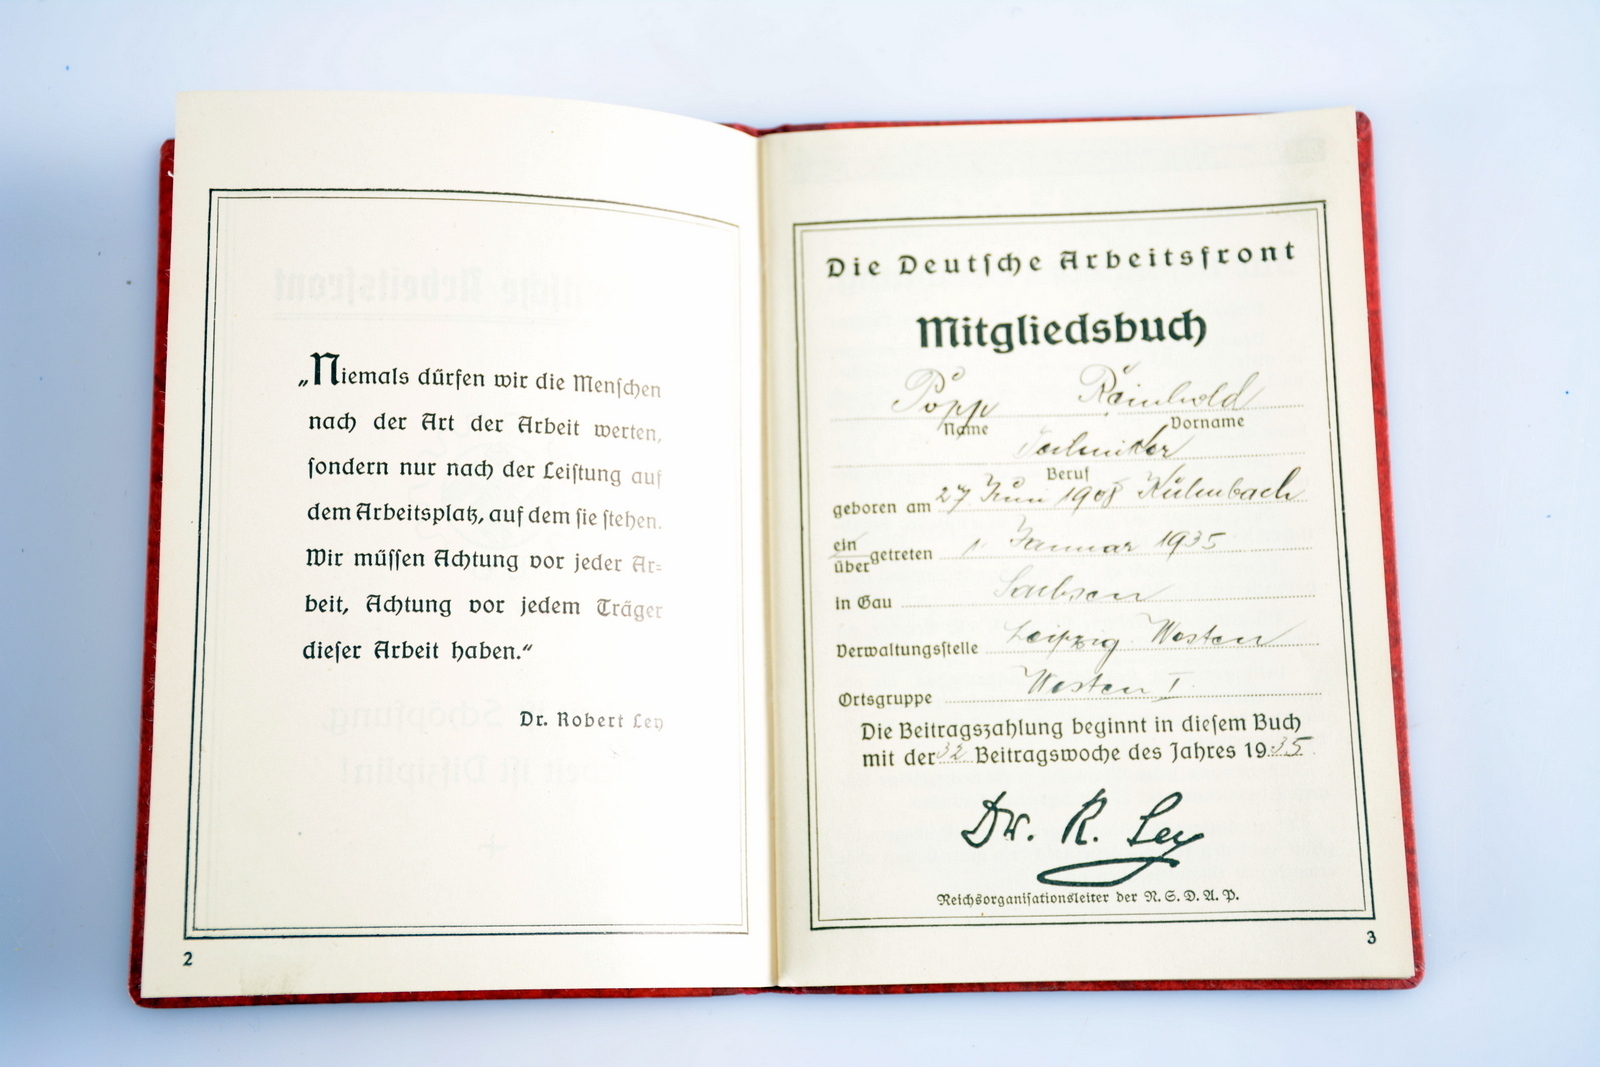 „Niemals dürfen wir die Menschen
nach der Art der Arbeit werten,
sondern nur nach der Leistung auf
dem Arbeitsplatz, auf dem sie stehen.
Wir müssen Achtung vor jeder Ar=
beit, Achtung vor jedem Träger
dieser Arbeit haben.“
Dr. Robert Ley
2
Die Deutsche Arbeitsfront
Mitgliedsbuch
Popp Reinhold
Name Vorname
Techniker
Beruf
geboren am 27 Juni 1908 Kulmbach
ein
übergetreten 1. Januar 1935
in Gau Sachsen
Verwaltungsstelle Leipzig Westen
Ortsgruppe Westen I
Die Beitragszahlung beginnt in diesem Buch
mit der 32 Beitragswoche des Jahres 1935.
Dr. R. Ley
Reichsorganisationsleiter der N. S. D. A. P.
3